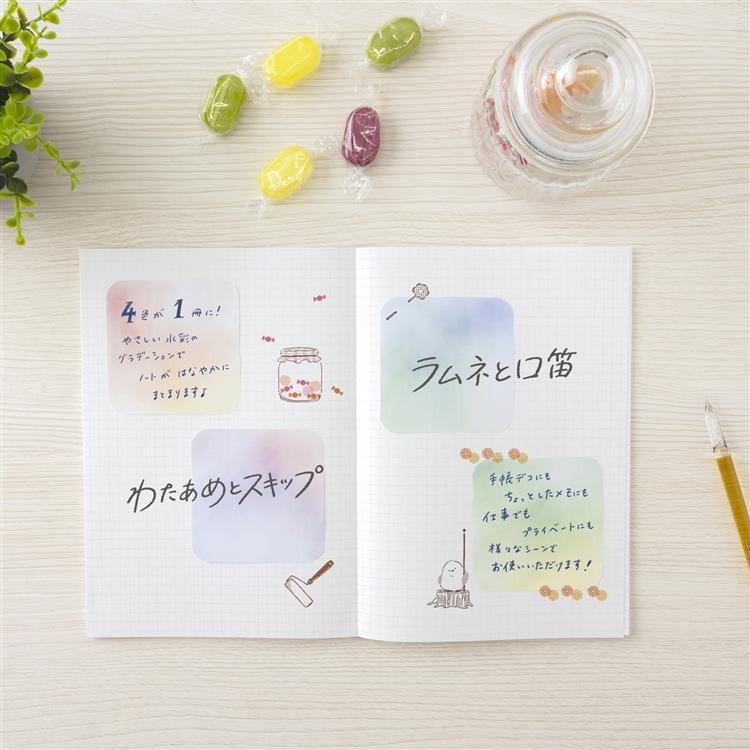 4色が1冊に!
やさしい水彩の
グラデーションで
ノートが はなやかに
まとまります♪
わたあめとスキップ
ラムネと口笛
手帳デコにも
ちょっとしたメモにも
仕事でも
プライベートにも
様々なシーンで
お使いいただけます!